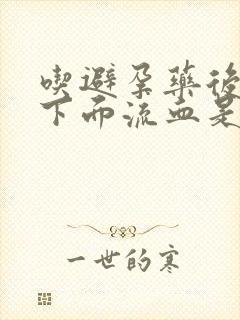 喫避孕藥後
下面流血是
一世的寒